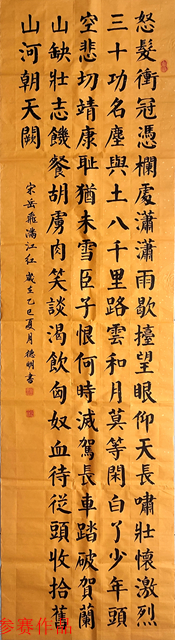 怒髮衝冠憑欄處瀟瀟雨歇擡望眼仰天長嘯壯懷激烈
三十功名塵與土八千里路雲和月莫等閑白了少年頭
空悲切靖康耻猶未雪臣子恨何時滅駕長車踏破賀蘭
山缺壯志饑餐胡虜肉笑談渴飲匈奴血待從頭收拾舊
山河朝天闕
宋岳飛滿江紅歲在乙巳夏月德明書
参赛作品